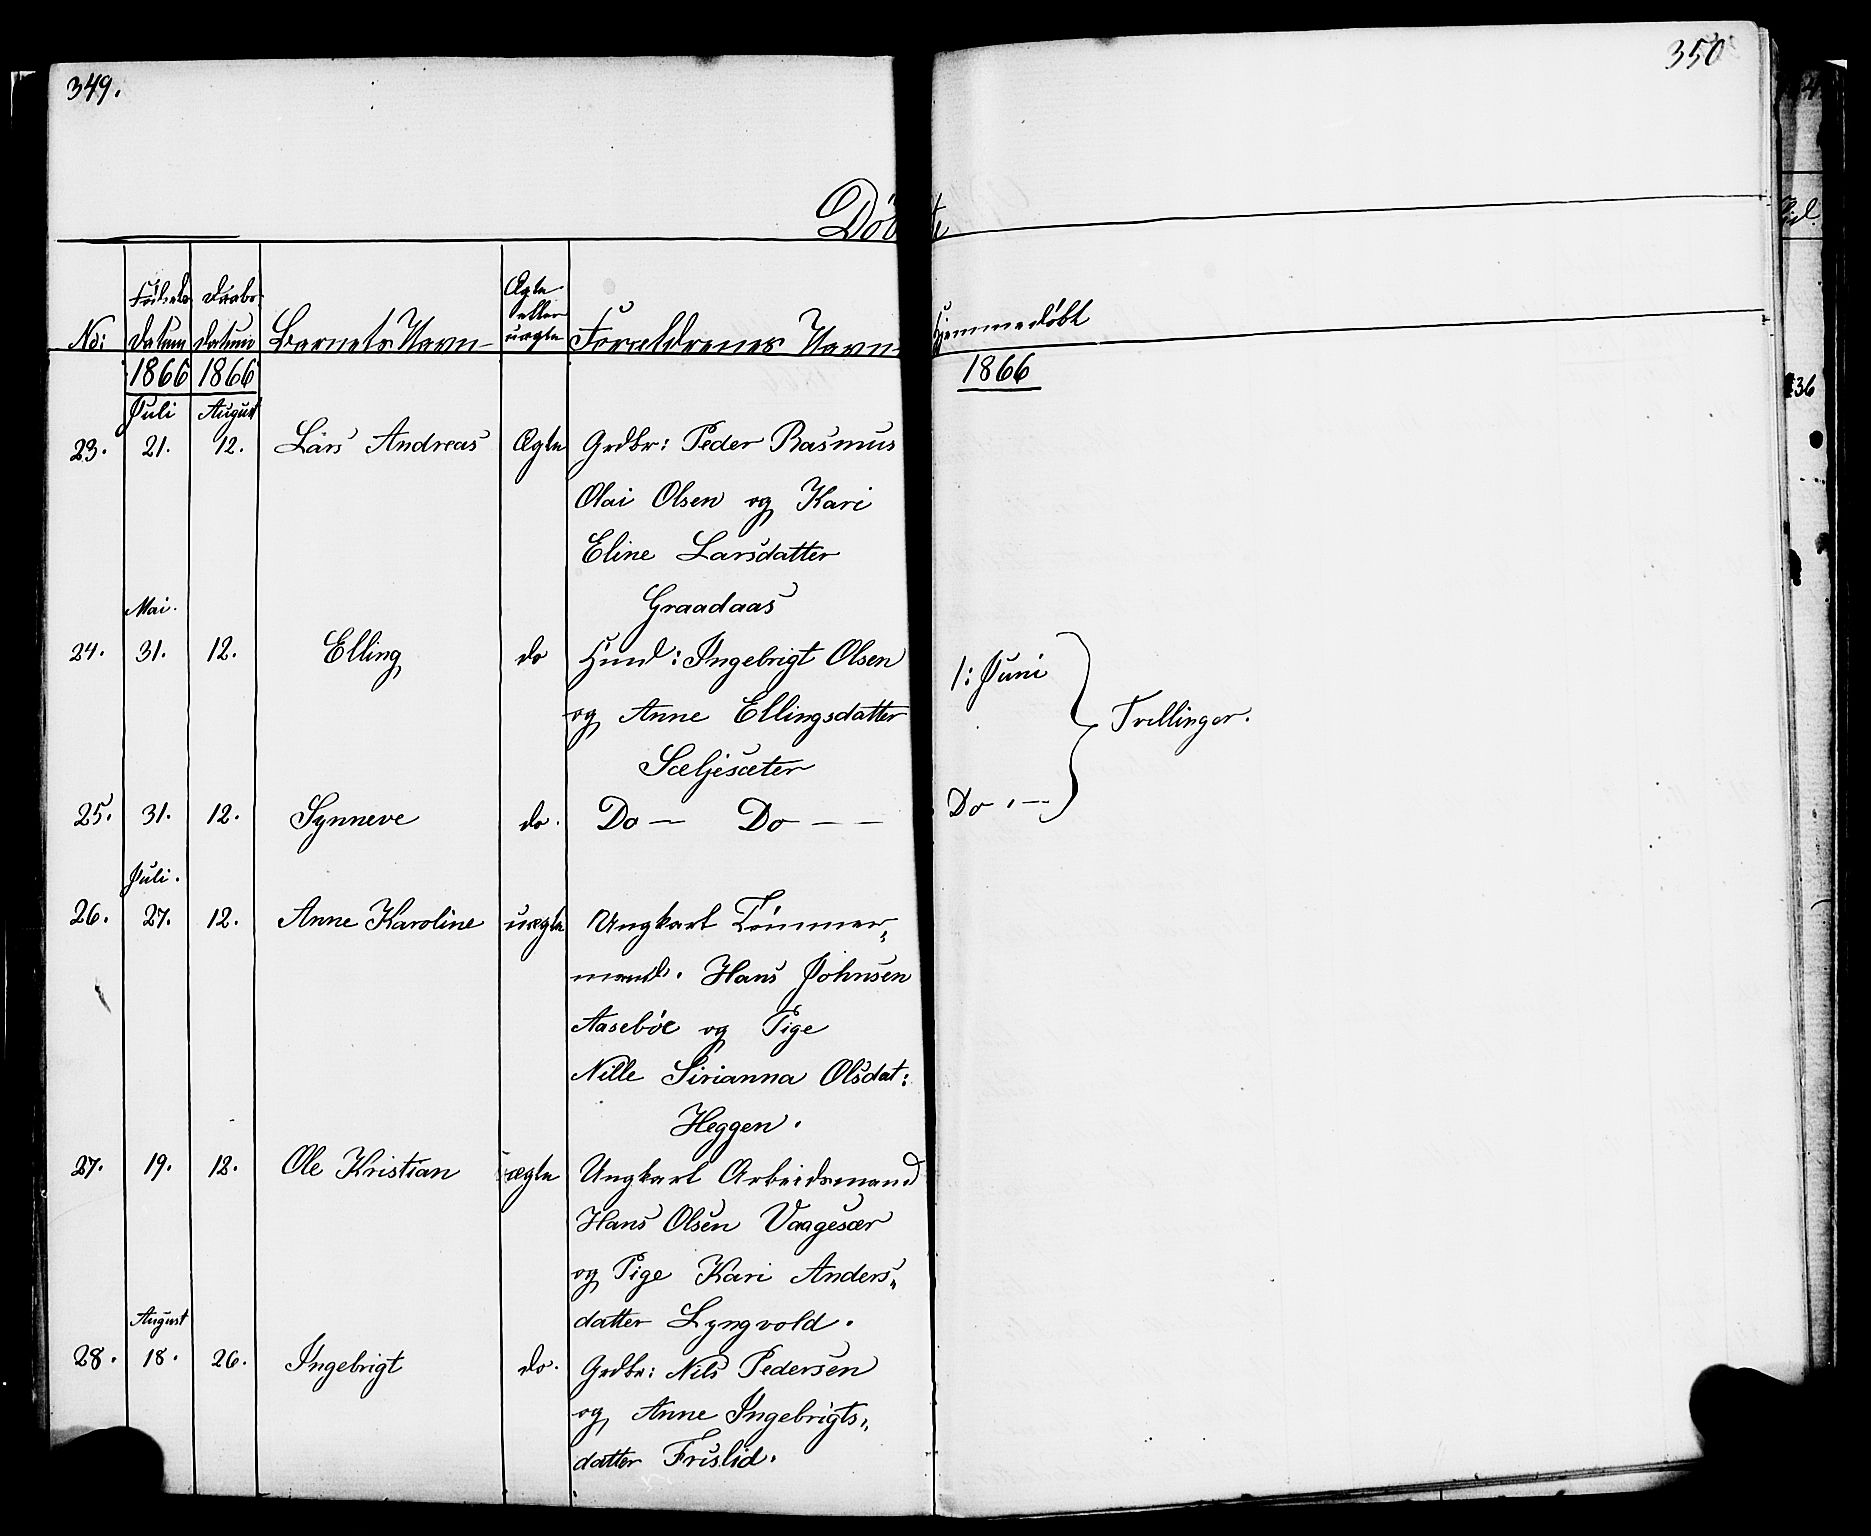 349.
350
Døbte
No: Fødsels datum Daabs datum Barnets Navn Ægte eller uægte Forældrenes Navn Hjemmedøbt
1866 1866 1866
Juli August
23. 21. 12. Lars Andreas Ægte Grdbr: Peder Rasmus
Olai Olsen og Kari
Eline Larsdatter
Graadaas
Mai.
24. 31. 12. Elling do Hmd: Ingebrigt Olsen 1: Juni
og Anne Ellingsdatter Tvillinger.
Sæljesæter
25. 31. 12. Synneve do. Do — Do — — Do . —
Juli.
26. 27. 12. Anne Karoline uægte Ungkarl Tømmer„
mand. Hans Johnsen
Aasebøe og Pige
Nille Sirianna Olsdat:
Heggen.
27. 19. 12. Ole Kristian ægte Ungkarl Arbeidsmand
Hans Olsen Vaagesær
og Pige Kari Anders„
datter Lyngvold.
August
28. 18. 26. Ingebrigt do. Grdbr: Nils Pedersen
og Anne Ingebrigts„
datter Frislid.